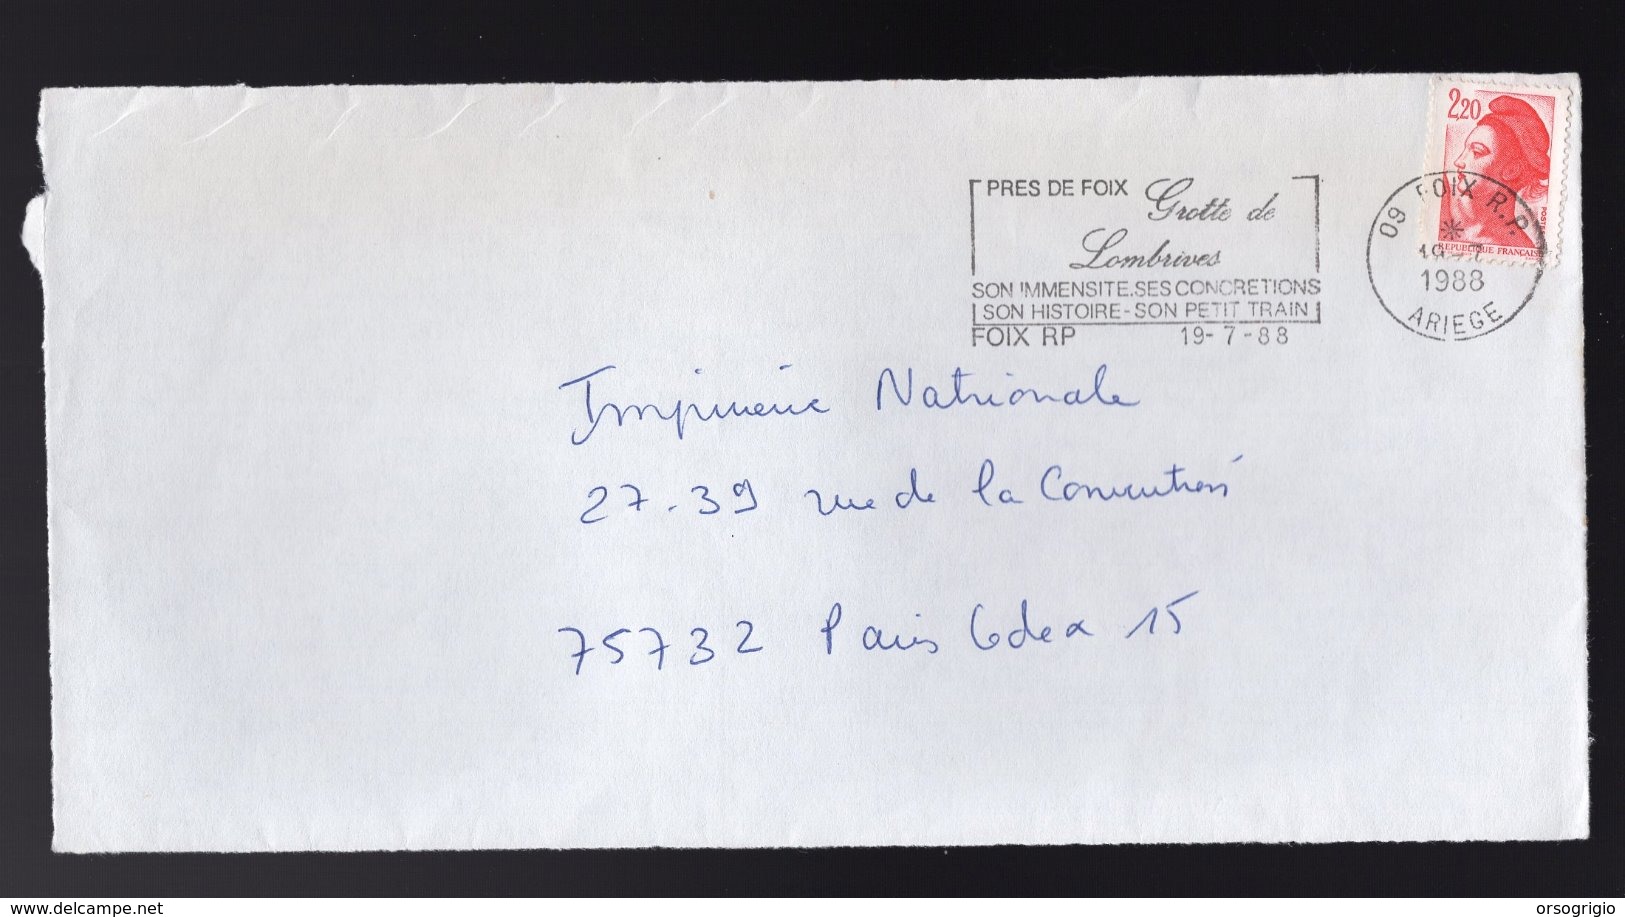 2,20
POSTES
REPUBLIQUE FRANÇAISE
PRES DE FOIX Grotte de
Lombrives
SON IMMENSITE.SES CONCRETIONS
SON HISTOIRE-SON PETIT TRAIN
FOIX RP 19-7-88
09 FOIX R.P.
1988
ARIEGE
Imprimerie Nationale
27.39 rue de la Convention
75732 Paris Cedex 15
www.delcampe.net
orsogrigio